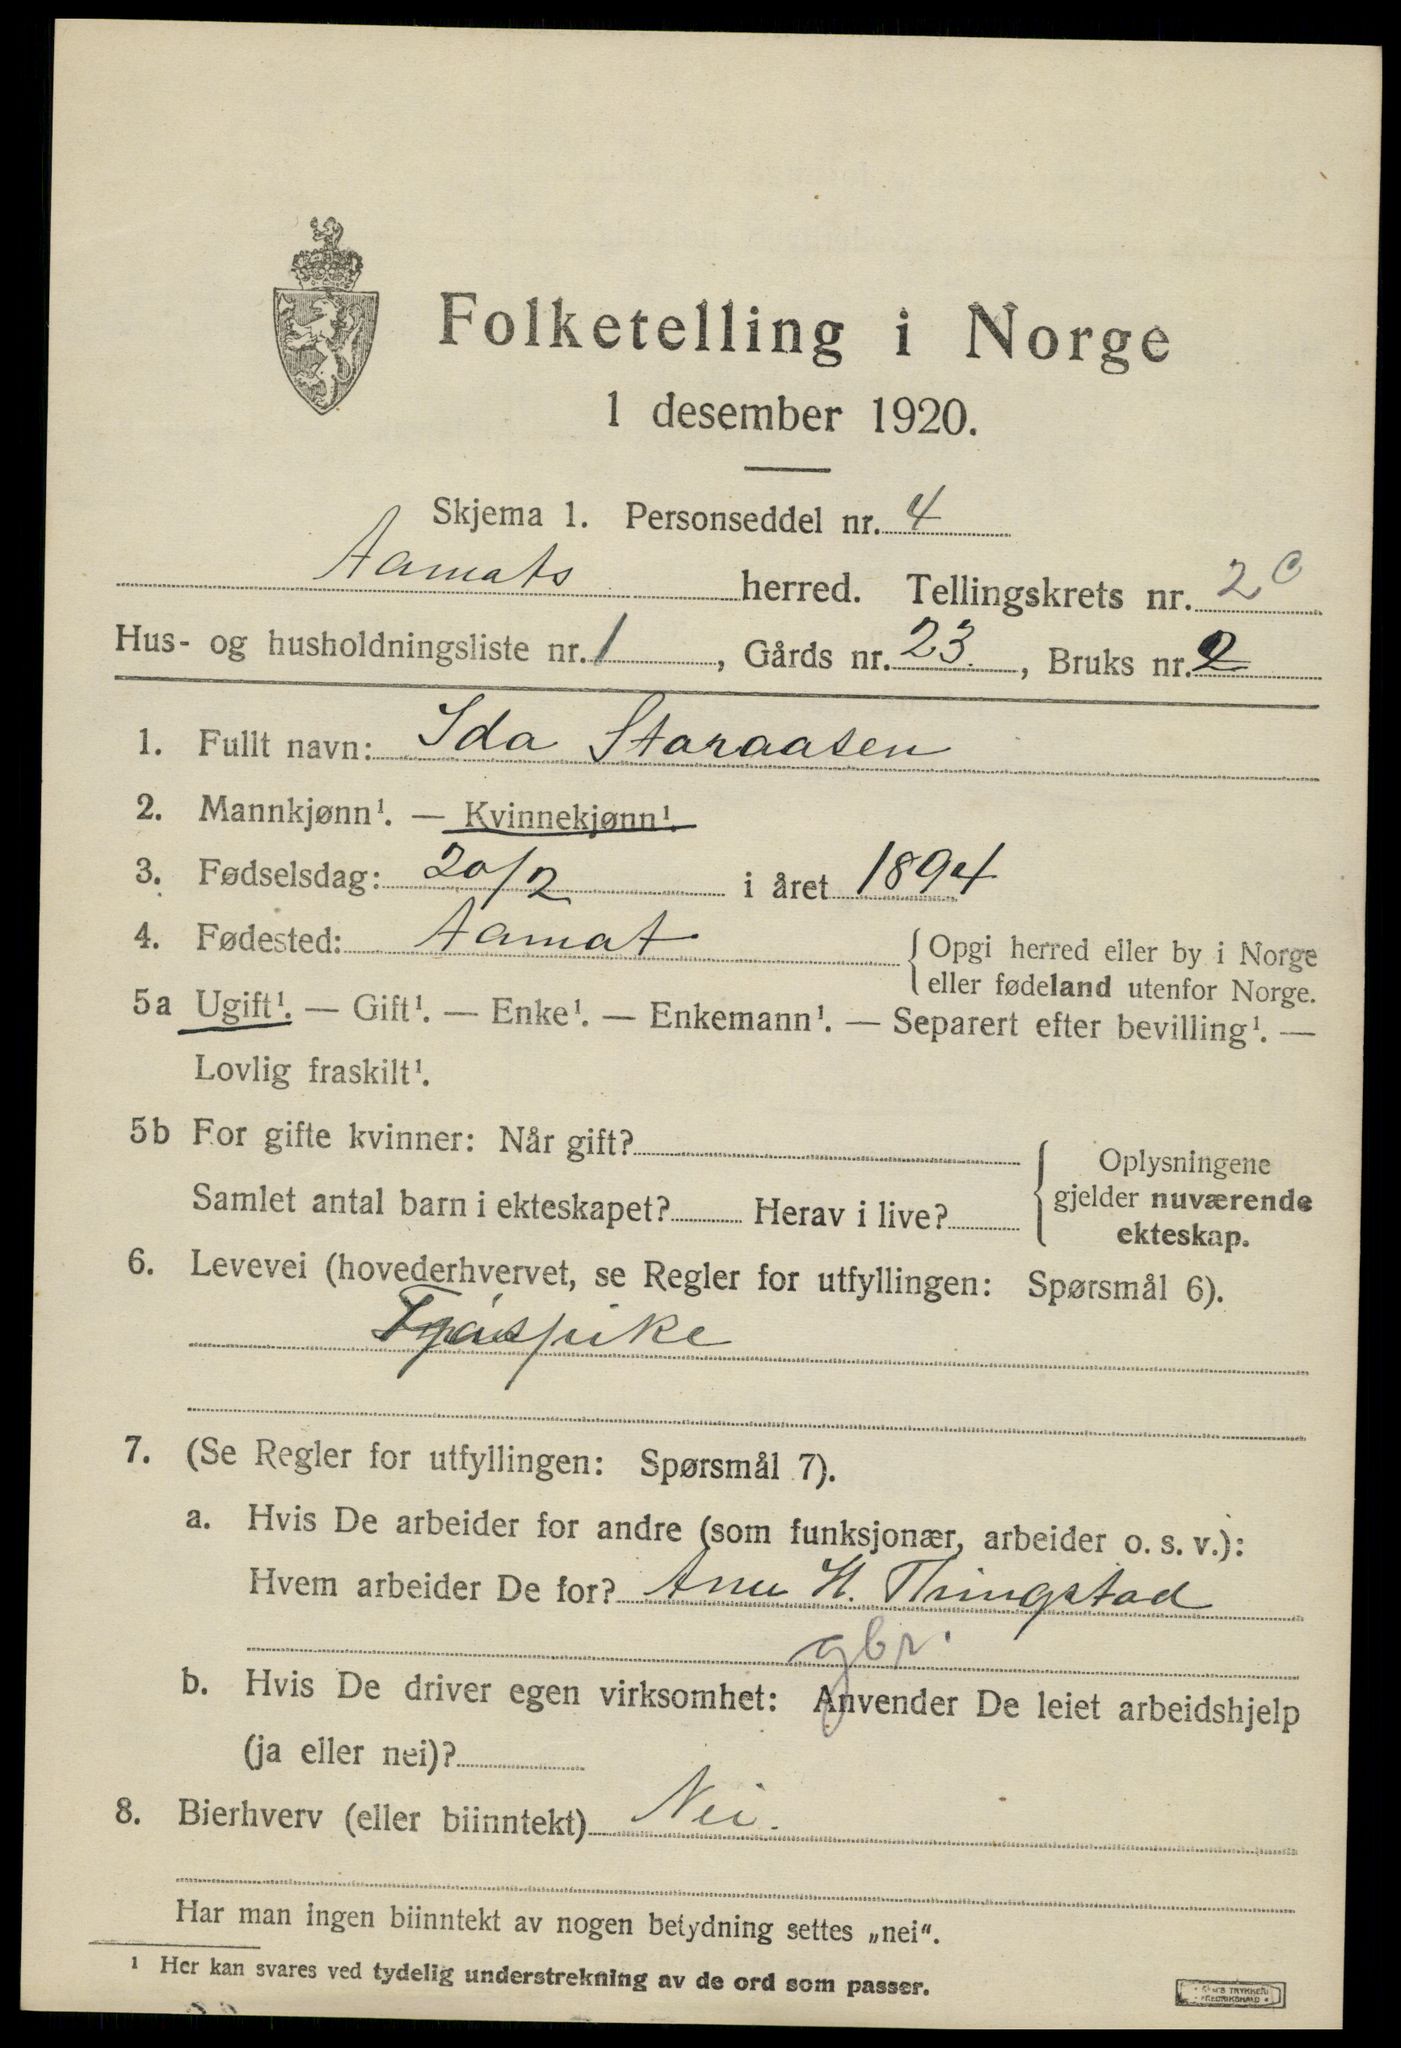 Folketelling i Norge
1 desember 1920.
Skjema 1. Personseddel nr. 4
Aamots herred. Tellingskrets nr. 2 c
Hus- og husholdningsliste nr. 1, Gårds nr. 23, Bruks nr. 2
1. Fullt navn: Ida Storaasen
2. Mannkjønn¹. — Kvinnekjønn¹.
3. Fødselsdag: 20/2 i året 1894
4. Fødested: Aamot { Opgi herred eller by i Norge
eller fødeland utenfor Norge.
5a Ugift¹. — Gift¹. — Enke¹. — Enkemann¹. — Separert efter bevilling¹. —
Lovlig fraskilt¹.
5b For gifte kvinner: Når gift?
Samlet antal barn i ekteskapet? Herav i live?
Oplysningene
gjelder nuværende
ekteskap.
6. Levevei (hovederhvervet, se Regler for utfyllingen: Spørsmål 6).
7. (Se Regler for utfyllingen: Spørsmål 7).
a. Hvis De arbeider for andre (som funksjonær, arbeider o. s. v.):
Hvem arbeider De for? H. Thingstad
gbr.
b. Hvis De driver egen virksomhet: Anvender De leiet arbeidshjelp
(ja eller nei)?
8. Bierhverv (eller biinntekt) Nei.
Har man ingen biinntekt av nogen betydning settes „nei“.
¹ Her kan svares ved tydelig understrekning av de ord som passer.